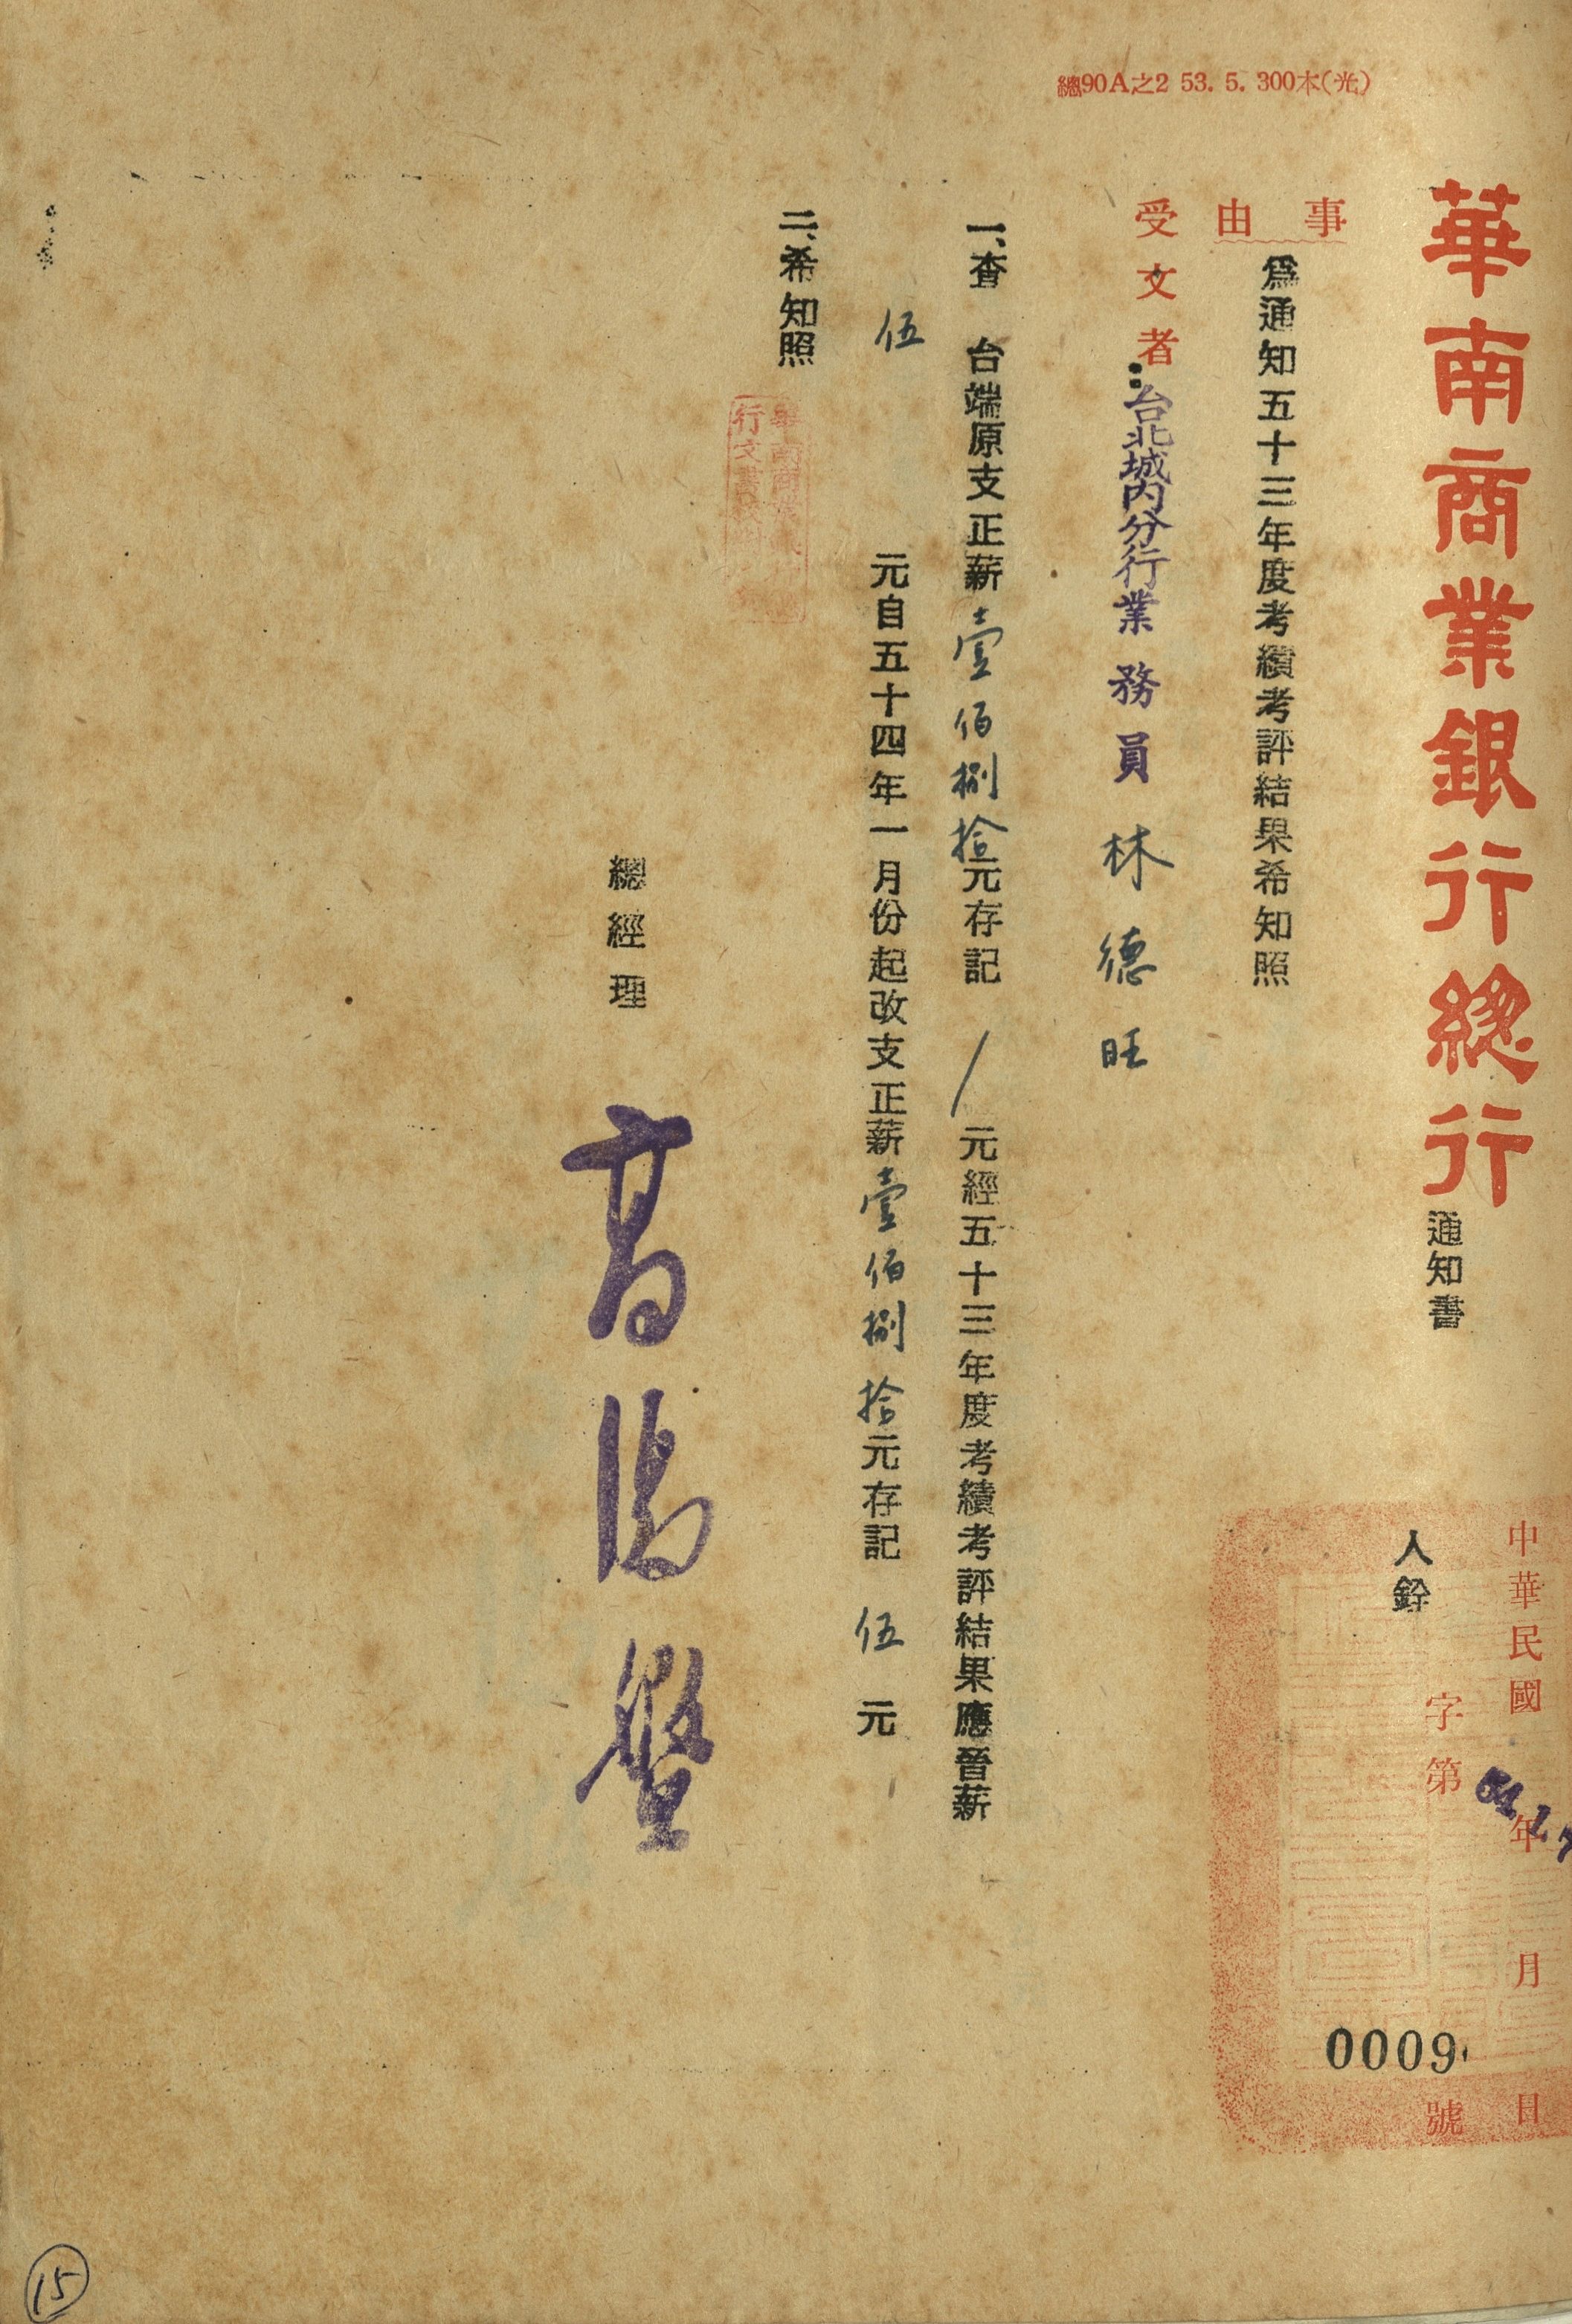 總90A之2 53. 5. 300本(光)
華南商業銀行總行通知書
中華民國 年 月 日
54. 1. 7
人銓字第0009號
事由
為通知五十三年度考績考評結果希知照
受文者：台北城內分行業務員 林德旺
一、查 台端原支正薪壹佰捌拾元存記 / 元經五十三年度考績考評結果應晉薪
伍 元自五十四年一月份起改支正薪壹佰捌拾元存記 伍 元
二、希知照
總經理 高湯盤
15